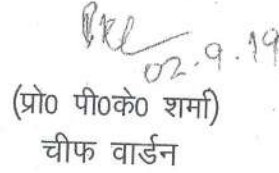 02.9.19
(प्रो0 पी0के0 शर्मा)
चीफ वार्डन